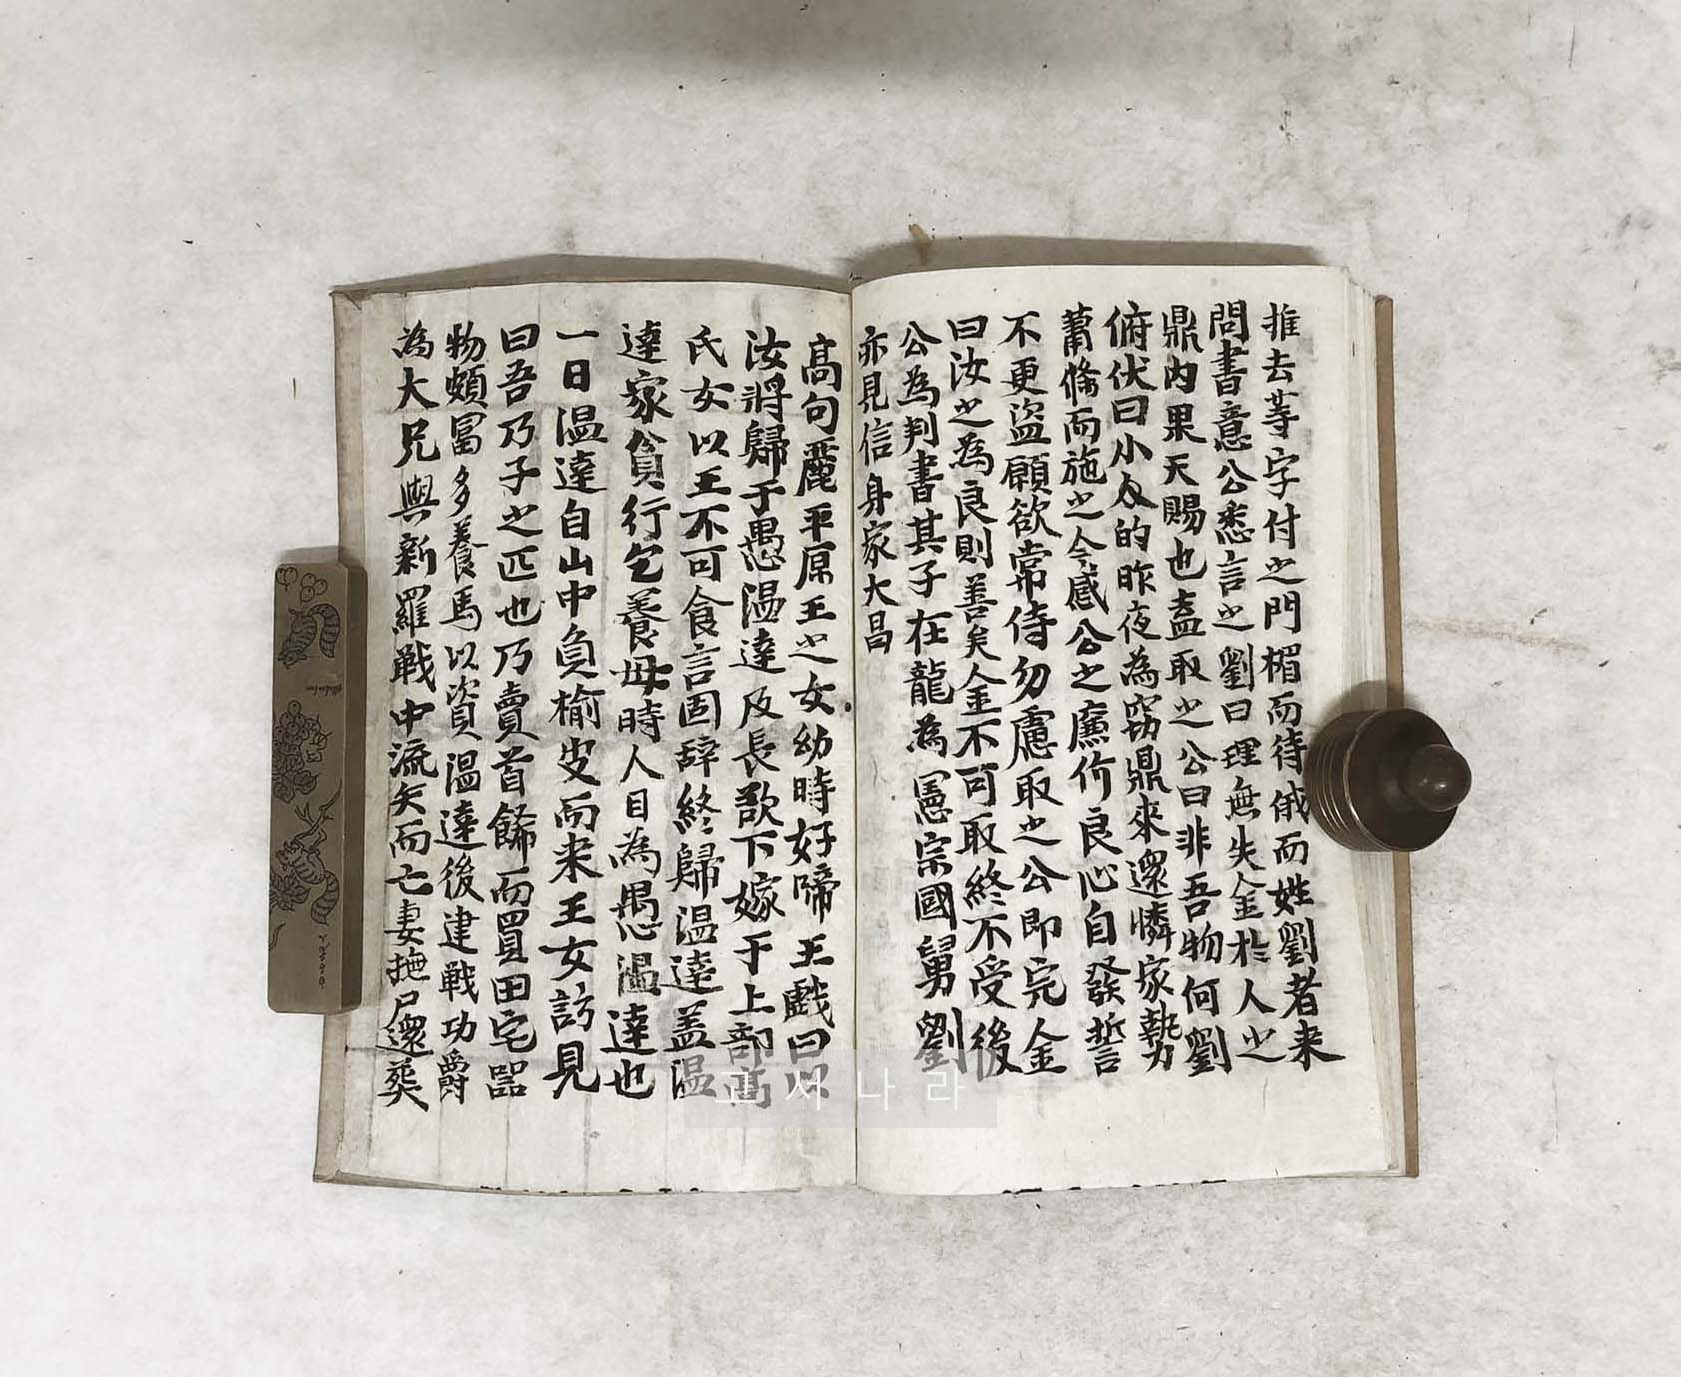 推去等字付之門楣而待俄而姓劉者来
問書意公悉言之劉曰理無失金於人之
鼎内果天賜也盍取之公曰非吾物何劉
俯伏曰小人的昨夜為窃鼎來還憐家勢
蕭條而施之今感公之廉价良心自發誓
不更盜願欲常侍勿慮取之公即完金
曰汝之為良則善矣金不可取終不受後
公為判書其子在龍為憲宗國舅劉
亦見信身家大昌
高句麗平原王之女幼時好啼王戱曰以
汝將歸于愚温達及長欲下嫁于上部高
氏女以王不可食言固辞終歸温達盖温
達家貧行乞養母時人目為愚温達也
一日温達自山中負榆皮而来王女訪見
曰吾乃子之匹也乃賣首餙而買田宅器
物頗冨多養馬以資温達後建戦功爵
為大兄與新羅戦中流矢而亡妻撫尸還葬
고서나라